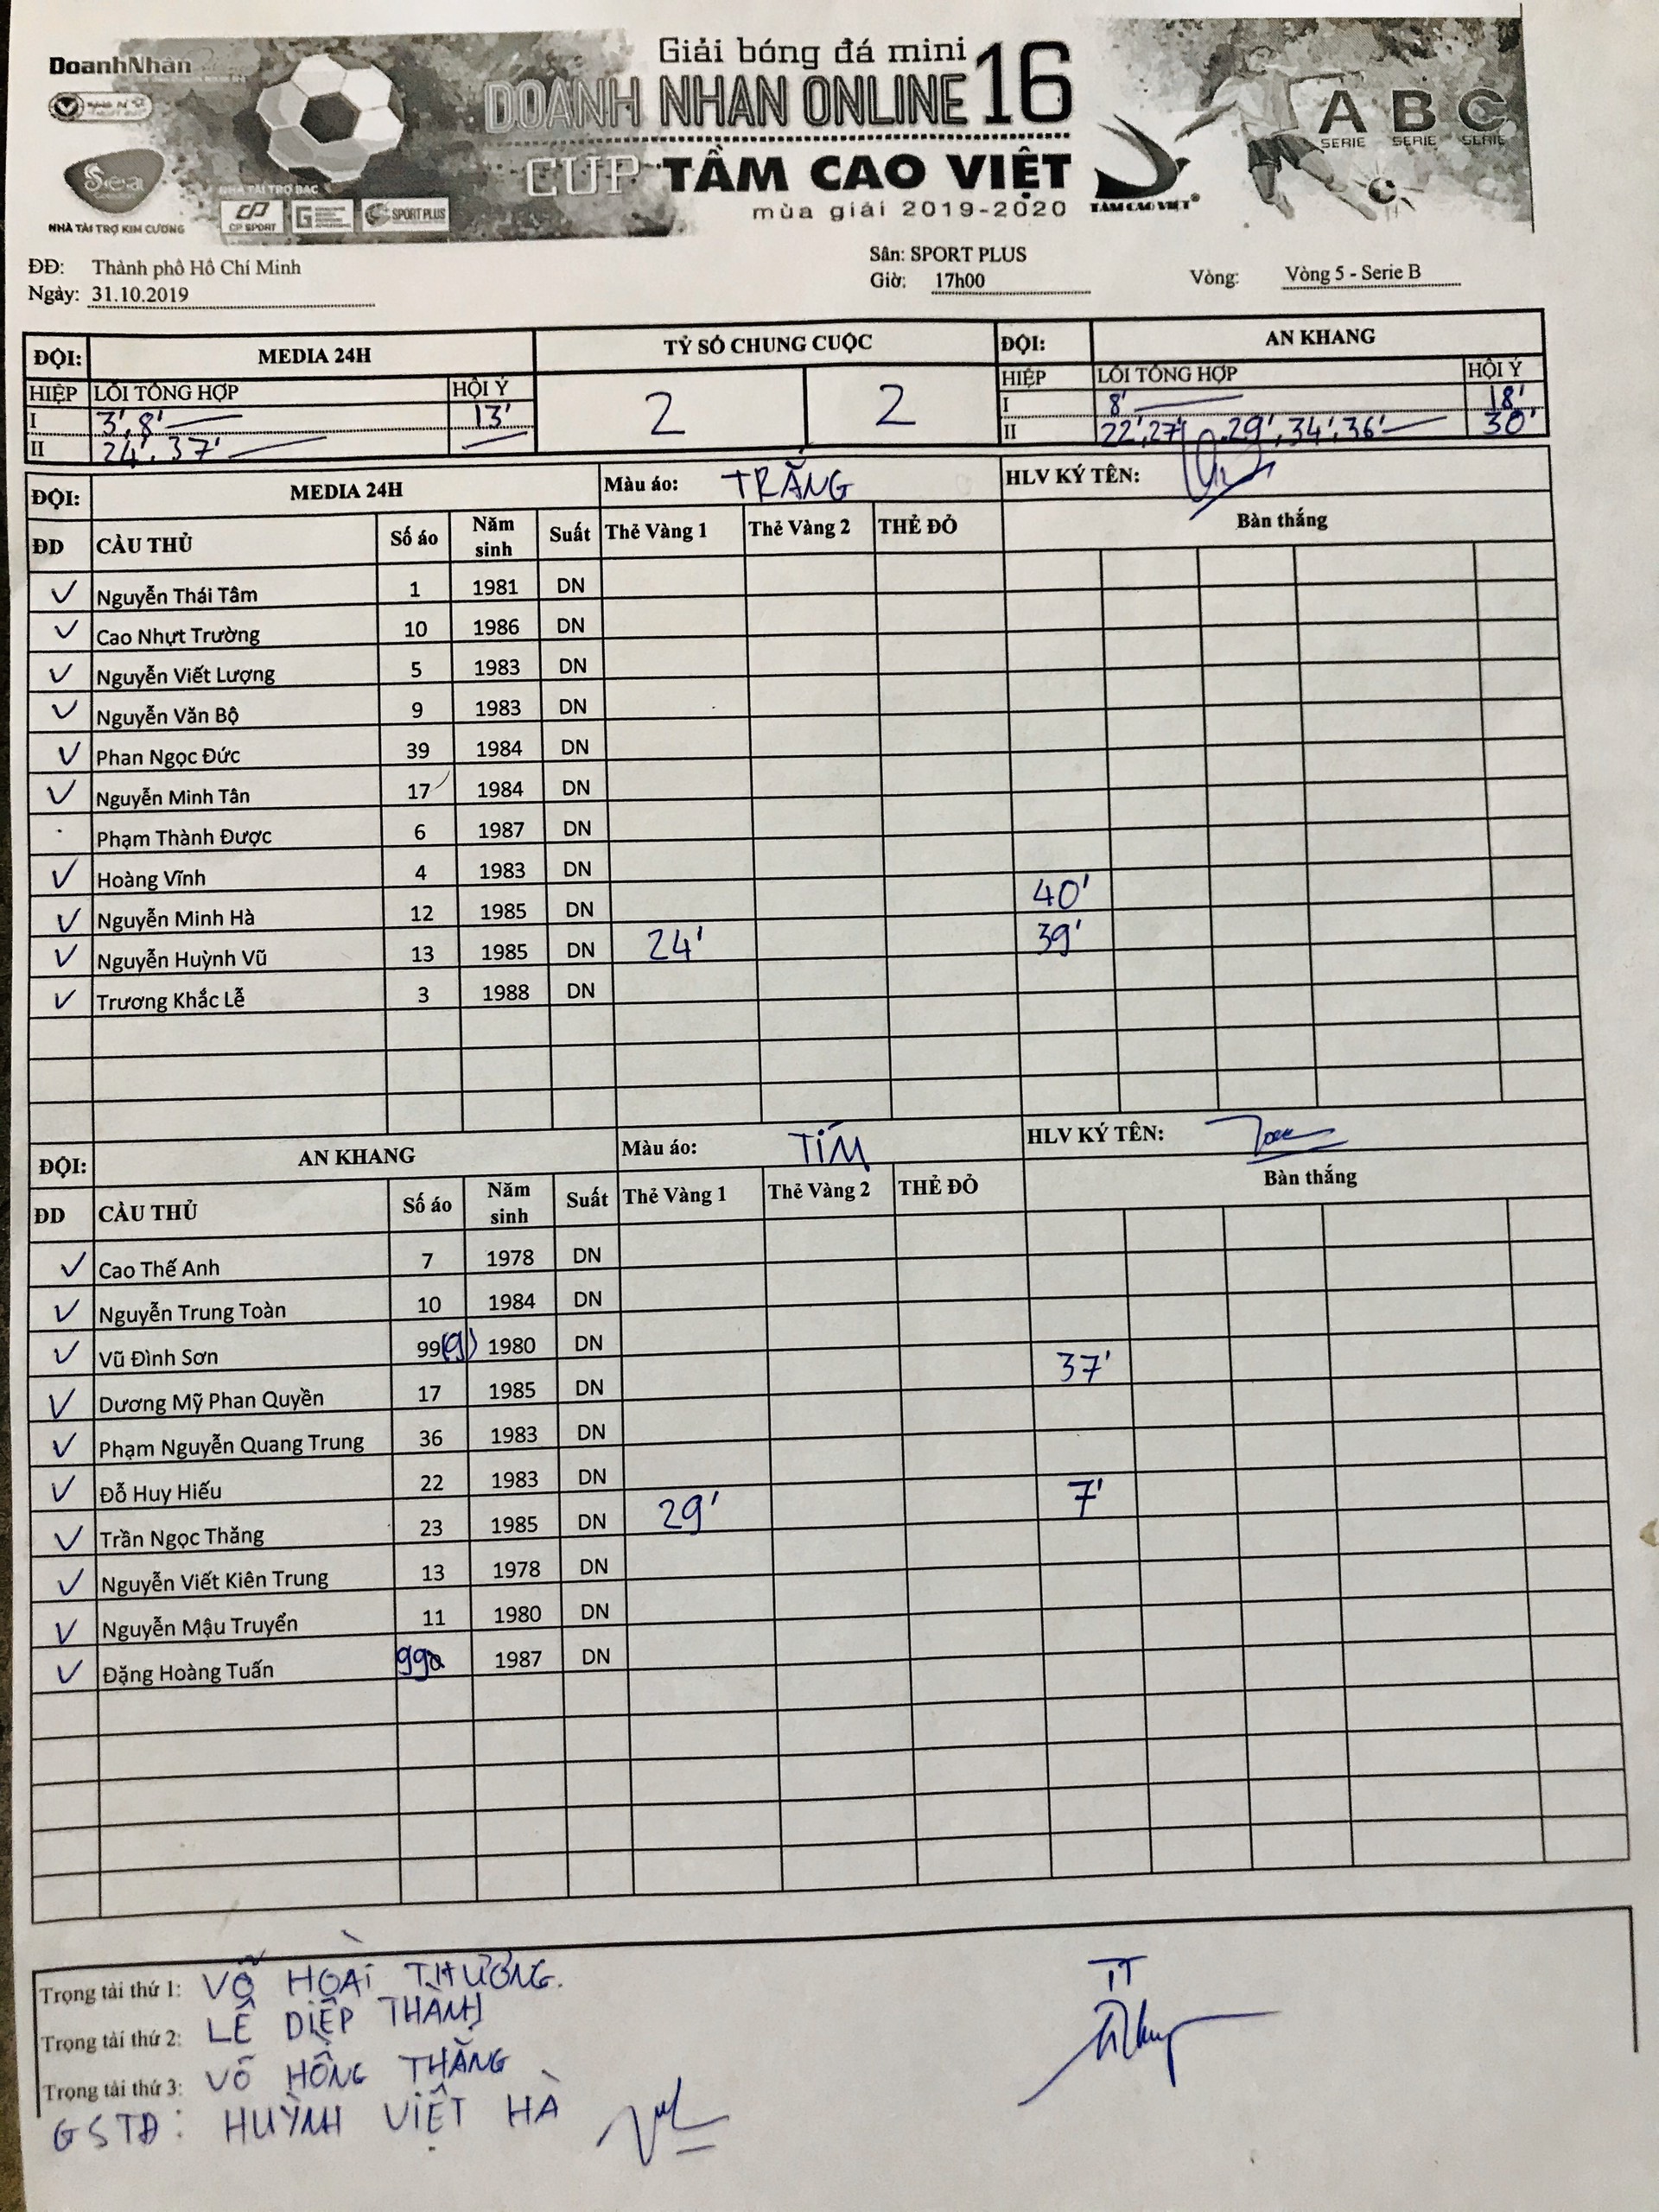 DoanhNhân
Sea
NHÀ TÀI TRỢ KIM CƯƠNG
NHÀ TÀI TRỢ BẠC
CP SPORT
SPORT PLUS
Giải bóng đá mini
DOANH NHAN ONLINE 16
CUP TẦM CAO VIỆT
mùa giải 2019-2020
TẦM CAO VIỆT
A B C
SERIE SERIE SERIE
ĐĐ: Thành phố Hồ Chí Minh
Sân: SPORT PLUS
Ngày: 31.10.2019
Giờ: 17h00
Vòng: Vòng 5 - Serie B
ĐỘI: MEDIA 24H TỶ SỐ CHUNG CUỘC ĐỘI: AN KHANG
HIỆP LỖI TỔNG HỢP HỘI Ý 2 2 HIỆP LỖI TỔNG HỢP HỘI Ý
I 3', 8' 13' I 8' 18'
II 24', 37' II 22', 27', 29', 34', 36' 30'
ĐỘI: MEDIA 24H Màu áo: TRẮNG HLV KÝ TÊN:
ĐD CẦU THỦ Số áo Năm sinh Suất Thẻ Vàng 1 Thẻ Vàng 2 THẺ ĐỎ Bàn thắng
Nguyễn Thái Tâm 1 1981 DN
Cao Nhựt Trường 10 1986 DN
Nguyễn Viết Lượng 5 1983 DN
Nguyễn Văn Bộ 9 1983 DN
Phan Ngọc Đức 39 1984 DN
Nguyễn Minh Tân 17 1984 DN
Phạm Thành Được 6 1987 DN
Hoàng Vĩnh 4 1983 DN
Nguyễn Minh Hà 12 1985 DN 40'
Nguyễn Huỳnh Vũ 13 1985 DN 24' 39'
Trương Khắc Lễ 3 1988 DN
ĐỘI: AN KHANG Màu áo: TÍM HLV KÝ TÊN:
ĐD CẦU THỦ Số áo Năm sinh Suất Thẻ Vàng 1 Thẻ Vàng 2 THẺ ĐỎ Bàn thắng
Cao Thế Anh 7 1978 DN
Nguyễn Trung Toàn 10 1984 DN
Vũ Đình Sơn 99(9) 1980 DN
Dương Mỹ Phan Quyền 17 1985 DN 37'
Phạm Nguyễn Quang Trung 36 1983 DN
Đỗ Huy Hiếu 22 1983 DN
Trần Ngọc Thăng 23 1985 DN 29' 7'
Nguyễn Viết Kiên Trung 13 1978 DN
Nguyễn Mậu Truyển 11 1980 DN
Đặng Hoàng Tuấn 1987 DN
Trọng tài thứ 1: VÕ HOÀI THƯƠNG.
TT
Trọng tài thứ 2: LÊ DIỆP THÀNH
Trọng tài thứ 3: VÕ HỒNG THẮNG
GSTĐ: HUỲNH VIỆT HÀ